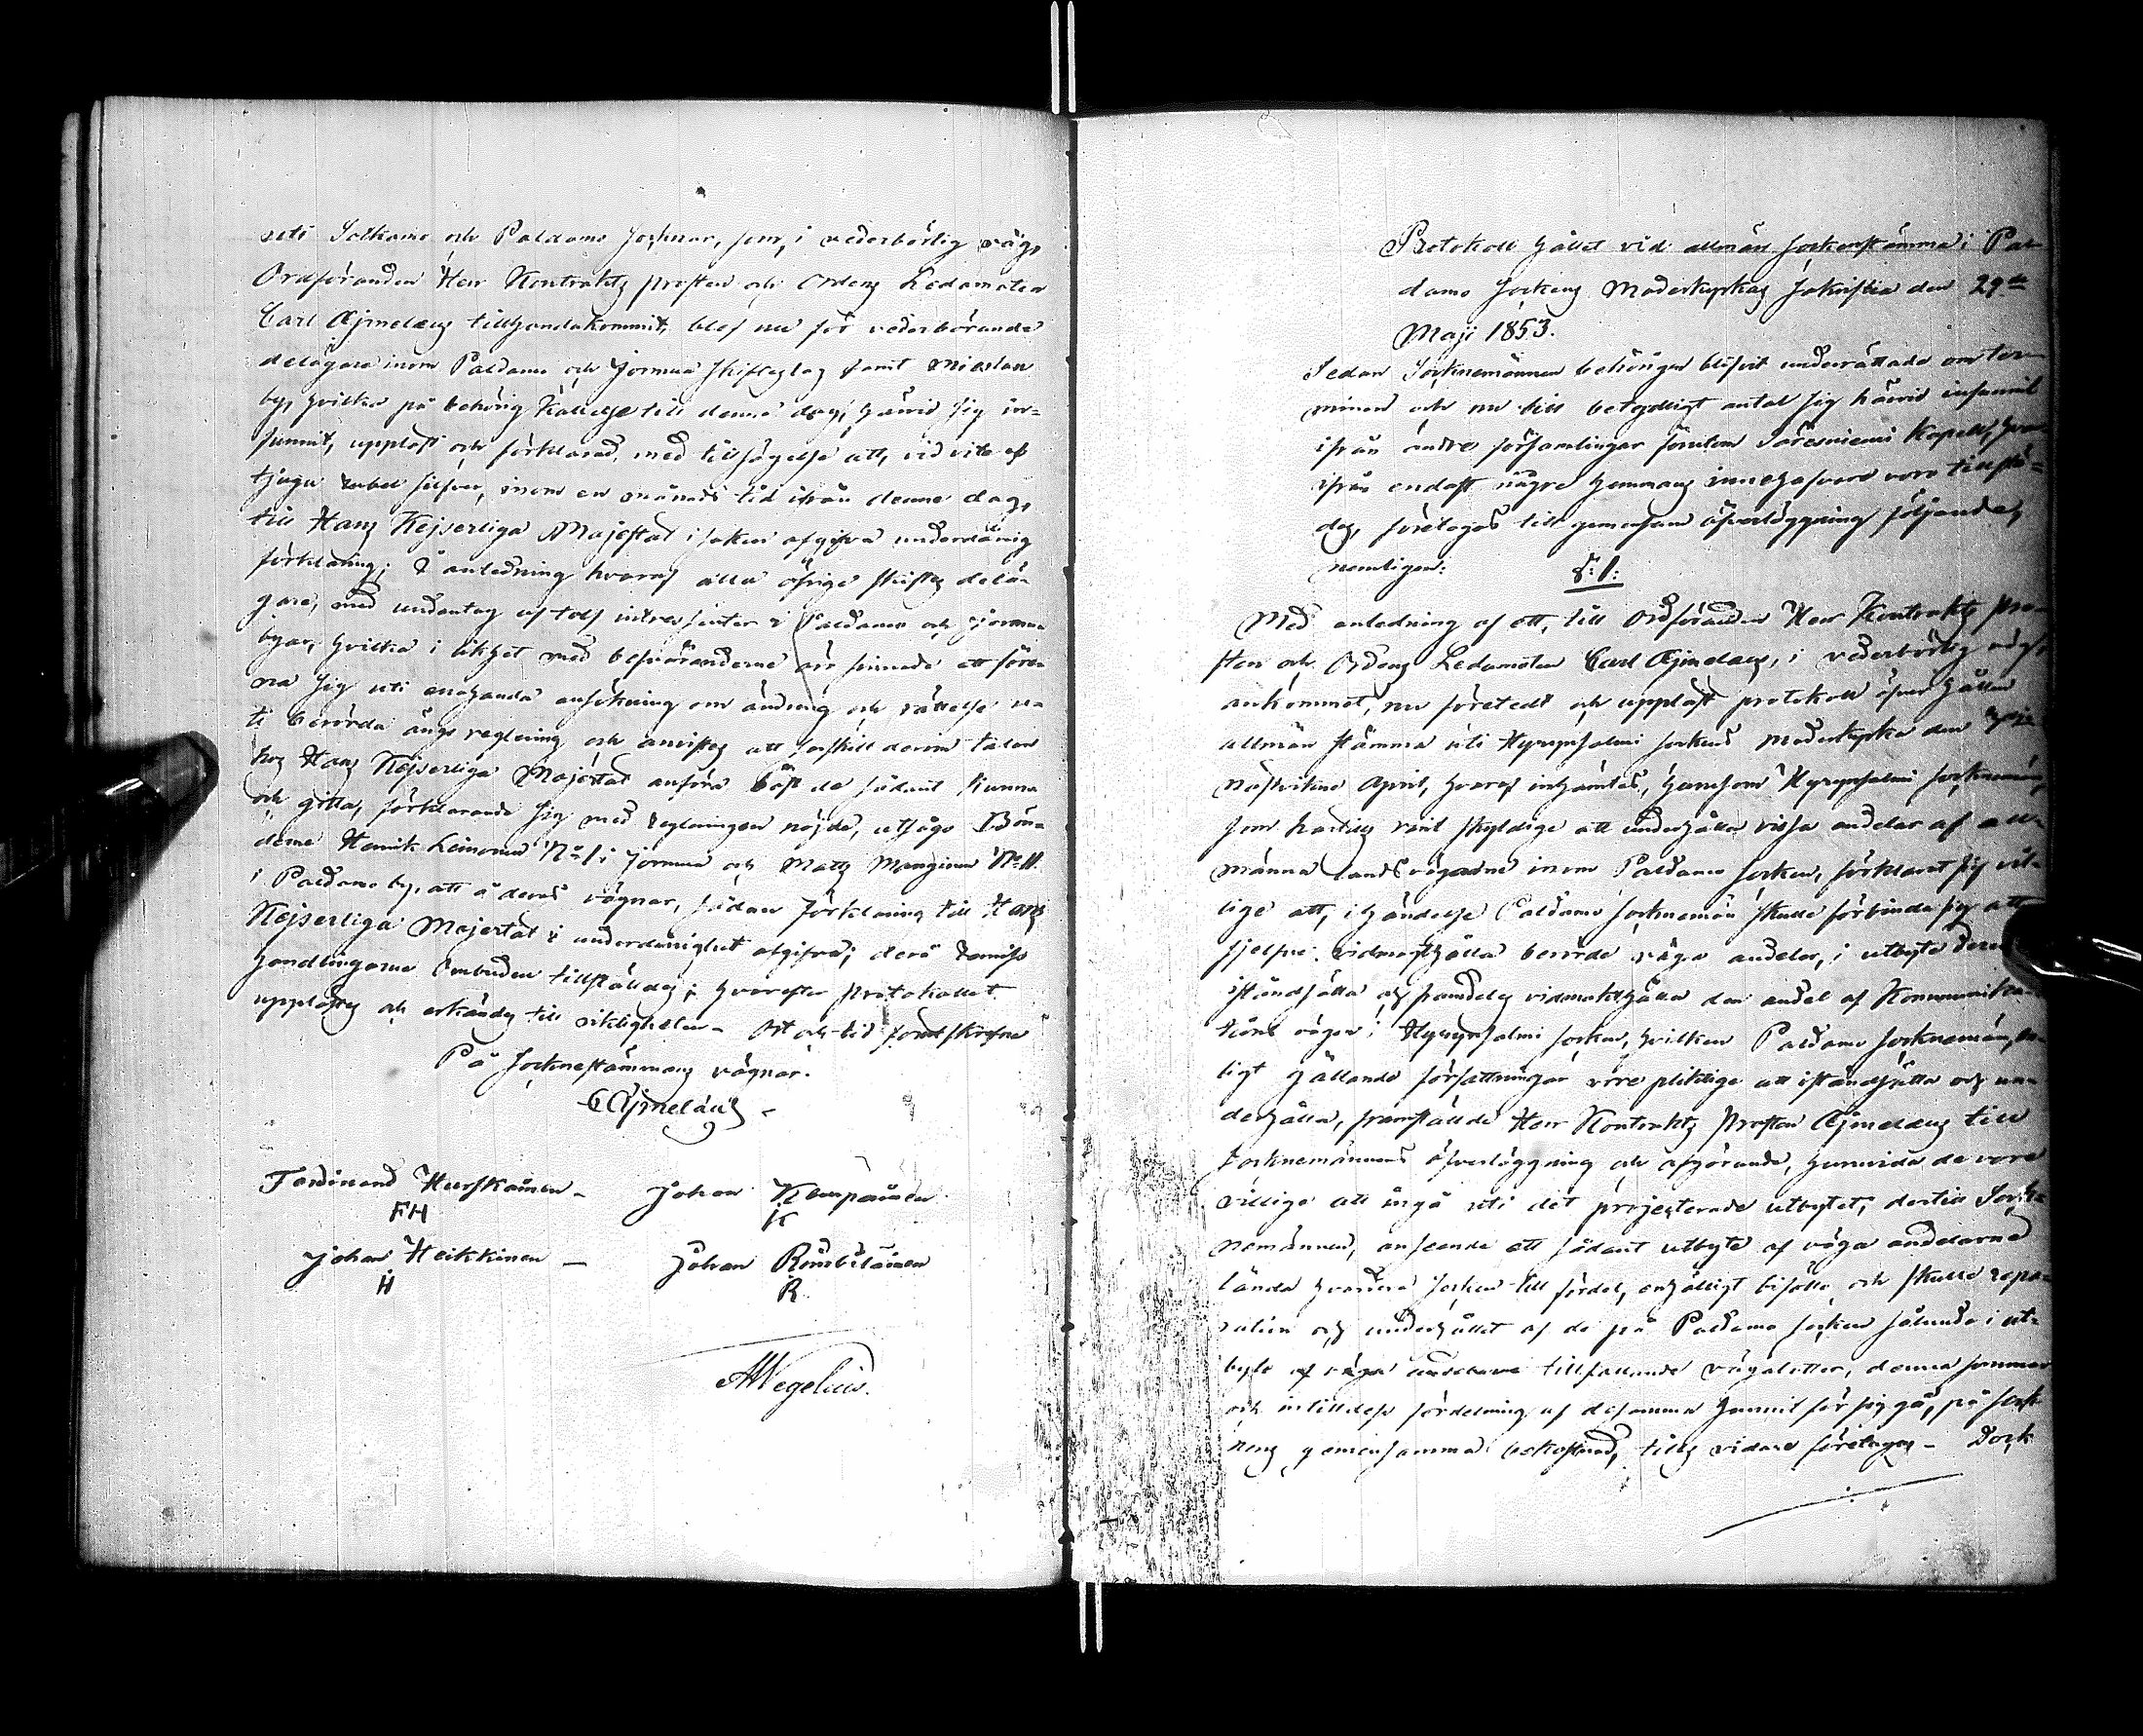 uti Sotkamo och Paldamo Socknar, som, i vederbörlig väg,
Ordföranden Herr Kontrakts prosten och Ordens Ledamoten
Carl Ajmelæus tillhandakommit, blef nu för vederbörande
delägare inom Paldamo och Jormua skifteslag samt Mieslax
by, hvilka på behörig kallelse till denna dag, härvid sig in-
funnit, uppläst och förklarad, med tillsägelse att, vid vite af
tjugu rubel silfver, inom en månads tid ifrån denne dag,
till Hans Kejserliga Majestät i saken afgifva underdånig
förklaring; I anledning hvaraf alla öfrige skiftes delä-
gare, med undantag af tolf intressenter i Paldamo och Jormua
byar, hvilka i likhet med besväranderne äro sinnade att före-
na sig uti enahanda ansökning om ändring och rättelse u-
ti berörda ängs reglering och anvistes att särskilt derom talan
hos Hans Kejserliga Majestät anföra bäst de sådant kunna
och gitta, förklarande sig med regleringen nöjde, utsågo Bön-
derne Henrik Leinonen No 1 i Jormua och Matts Manginen No 11.
i Paldamo by, att å deras vägnar, sådan förklaring till Hans
Kejserliga Majestät i underdånighet afgifva; derå remiss
handlingarne Ombuden tillställdes; hvarefter protokollet
upplästes och erkändes till riktigheten. Ort och tid förutskrifne
På Socknestämmans vägnar.
C Ajmelæus
Ferdinand Hurskainen - Johan Kemppainen
FH K
Johan Heikkinen - Johan Römbiläinen
H R
AWegelius.
Protokoll hållet vid allmän sockenstämma i Pal-
damo Sockens Moderkyrkas Sakristia den 29de
Maji 1853.
Sedan Socknemännen behörigen blifvit underrättade om ter-
minen och nu till betydligt antal sig härvid infunnit
ifrån andre församlingar förutom Säresniemi Kapell, hvar-
ifrån endast några hemmans innehafvare voro tillstä-
des, företogos till gemensam öfverläggning följande,
nemligen:
§: 1:
Med anledning af ett, till Ordföranden Herr Kontrakts pro-
sten och Ordens Ledamoten Carl Ajmelæus, i vederbörlig väg,
ankommet, nu företedt och uppläst protokoll öfver hållen
allmän stämma uti Hyrynsalmi sockens moderkyrka den
nästvikne April, hvaraf inhämtas, hurusom Hyrynsalmi socknemän,
som hartills varit skyldige att underhålla vissa andelar af all-
männa landsvägarne inom Paldamo socken, förklarat sig vil-
lige att, i händelse Paldamo socknemän skulle förbinda sig att
sjelfve vidmakthålla berörde väga andelar, i utbyte
iståndsätta och framdeles vidmakthålla den andel af Kommunika-
tions vägen i Hyrynsalmi socken, hvilken Paldamo socknemän, en-
ligt gällande författningar vore pliktige att iståndsätta och un-
derhålla, framställde Herr Kontrakts prosten Ajmelæus till
Socknemännens öfverläggning och afgörande, huruvida de vore
villige att ingå uti det projecterade utbytet; dertill Sock-
nemännen, anseende ett sådant utbyte af väga andelarne
lända hvardera socken till fördel, enhälligt biföllo, och skulle repa-
ration och underhållet af de på Paldamo socken sålunda i ut-
byte af väga andelarne tillfallande vägalotter, denna sommar
och intilldess fördelning af desamma hunnit för sig gå, på sock-
nens gemensamma bekostnad, tills vidare företagas - Dock